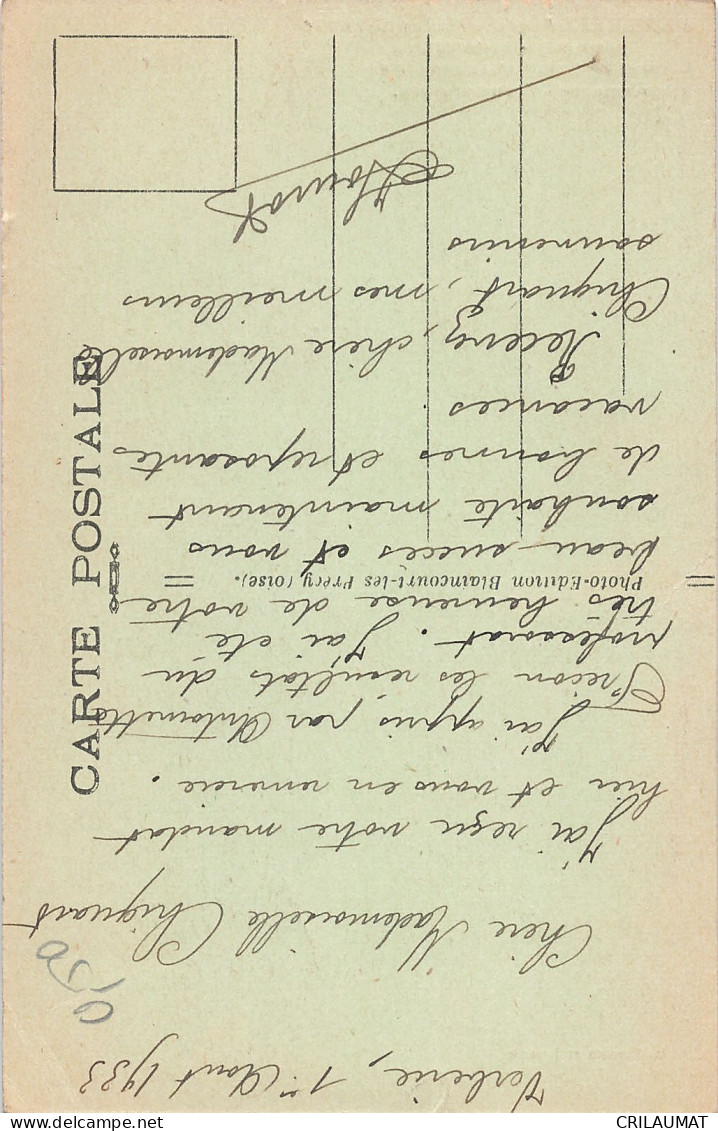 Verberie, 1er Août 1933
Chère Mademoiselle Chiquart
J'ai reçu votre mandat
hier et vous en remercie.
J'ai appris par Antoinette
Frécon les résultats du
professorat. J'ai été
très heureuse de votre
beau succès et vous
souhaite maintenant
de bonnes et reposantes
vacances.
Recevez, chère Mademoiselle
Chiquart, mes meilleurs
souvenirs
CARTE POSTALE
Photo-Edition Blaincourt-les Précy (oise).
CRILAUMAT